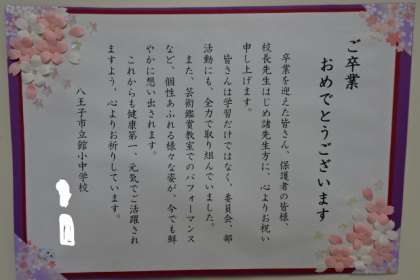 ご卒業
おめでとうございます
卒業を迎えた皆さん、保護者の皆様、
校長先生はじめ諸先生方に、心よりお祝い
申し上げます。
皆さんは学習だけではなく、委員会、部
活動にも、全力で取り組んでいました。
また、芸術鑑賞教室でのパフォーマンス
など、個性あふれる様々な姿が、今でも鮮
やかに想い出されます。
これからも健康第一、元気でご活躍され
ますよう、心よりお祈りしています。
八王子市立館小中学校